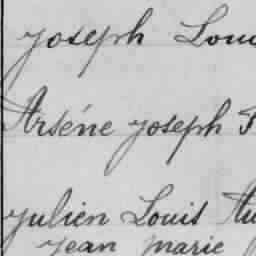 Joseph Loui
Arsène Joseph
Julien Louis Au
Jean Marie